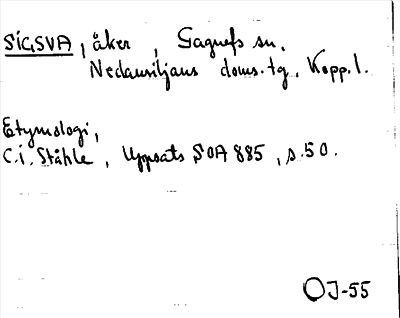 SIGSVA, åker, Gagnefs sn.
Nedansiljans doms.tg, Kopp.l.
Etymologi,
C.I. Ståhle, Uppsats SOA 885, s.50.
OJ-55